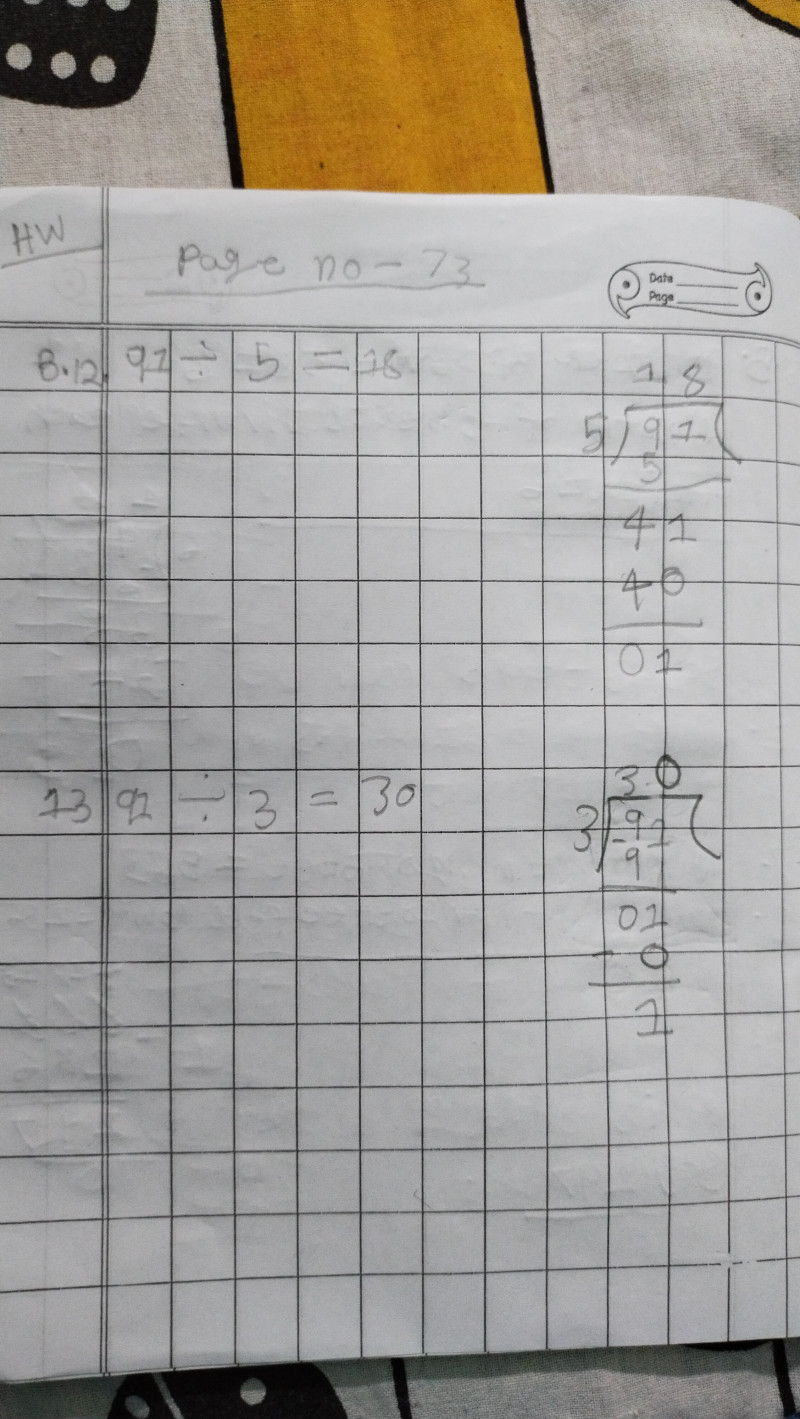 HW
Page no - 73
Date
Page
B.12. 91 ÷ 5 = 18
18
5) 91 (
5
41
40
01
13 91 ÷ 3 = 30
3.0
3) 91 (
- 9
01
- 0
1